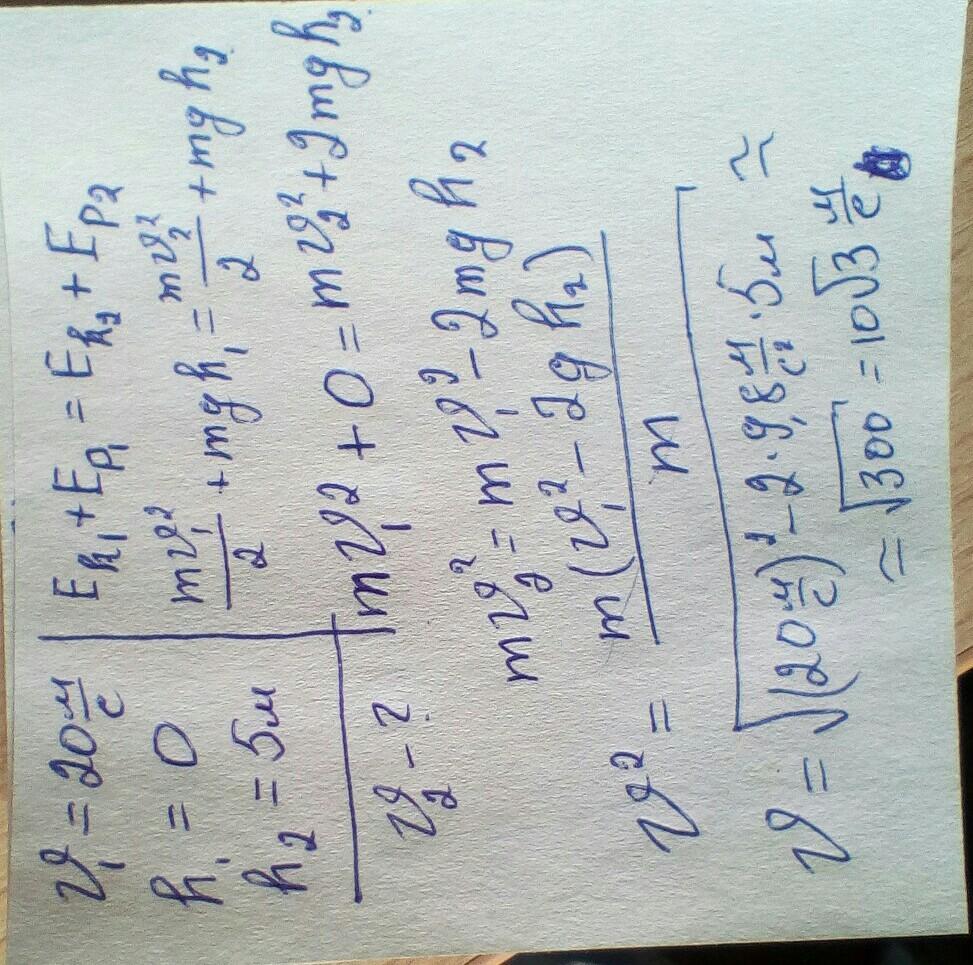 v₁ = 20 м/с
h₁ = 0
h₂ = 5м
v₂ - ?
E_k₁ + E_p₁ = E_k₂ + E_p₂
mv₁²/2 + mgh₁ = mv₂²/2 + mgh₂
mv₁2 + 0 = mv₂² + 2mgh₂
mv₂² = mv₁² - 2mgh₂
v² = m(v₁² - 2gh₂)/m
v = √((20 м/с)² - 2·9,8 м/с²·5м) ≃
≃ √300 = 10√3 м/с